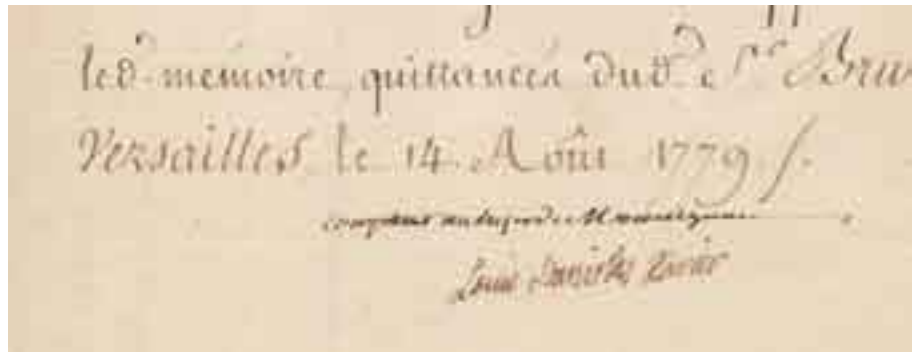 led. mémoire, quittancés dud. S.r Bru
Versailles le 14. Août 1779 /.
comptant au trésor de
Louis Stanislas Xavier